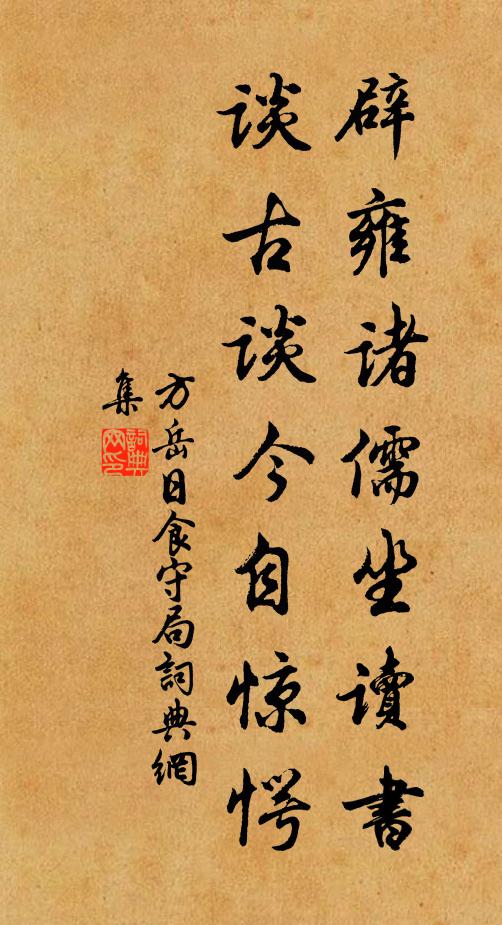 辟雍诸儒坐讀書
谈古谈今自惊愕
方岳日食守局詞典網
集
詞典网印